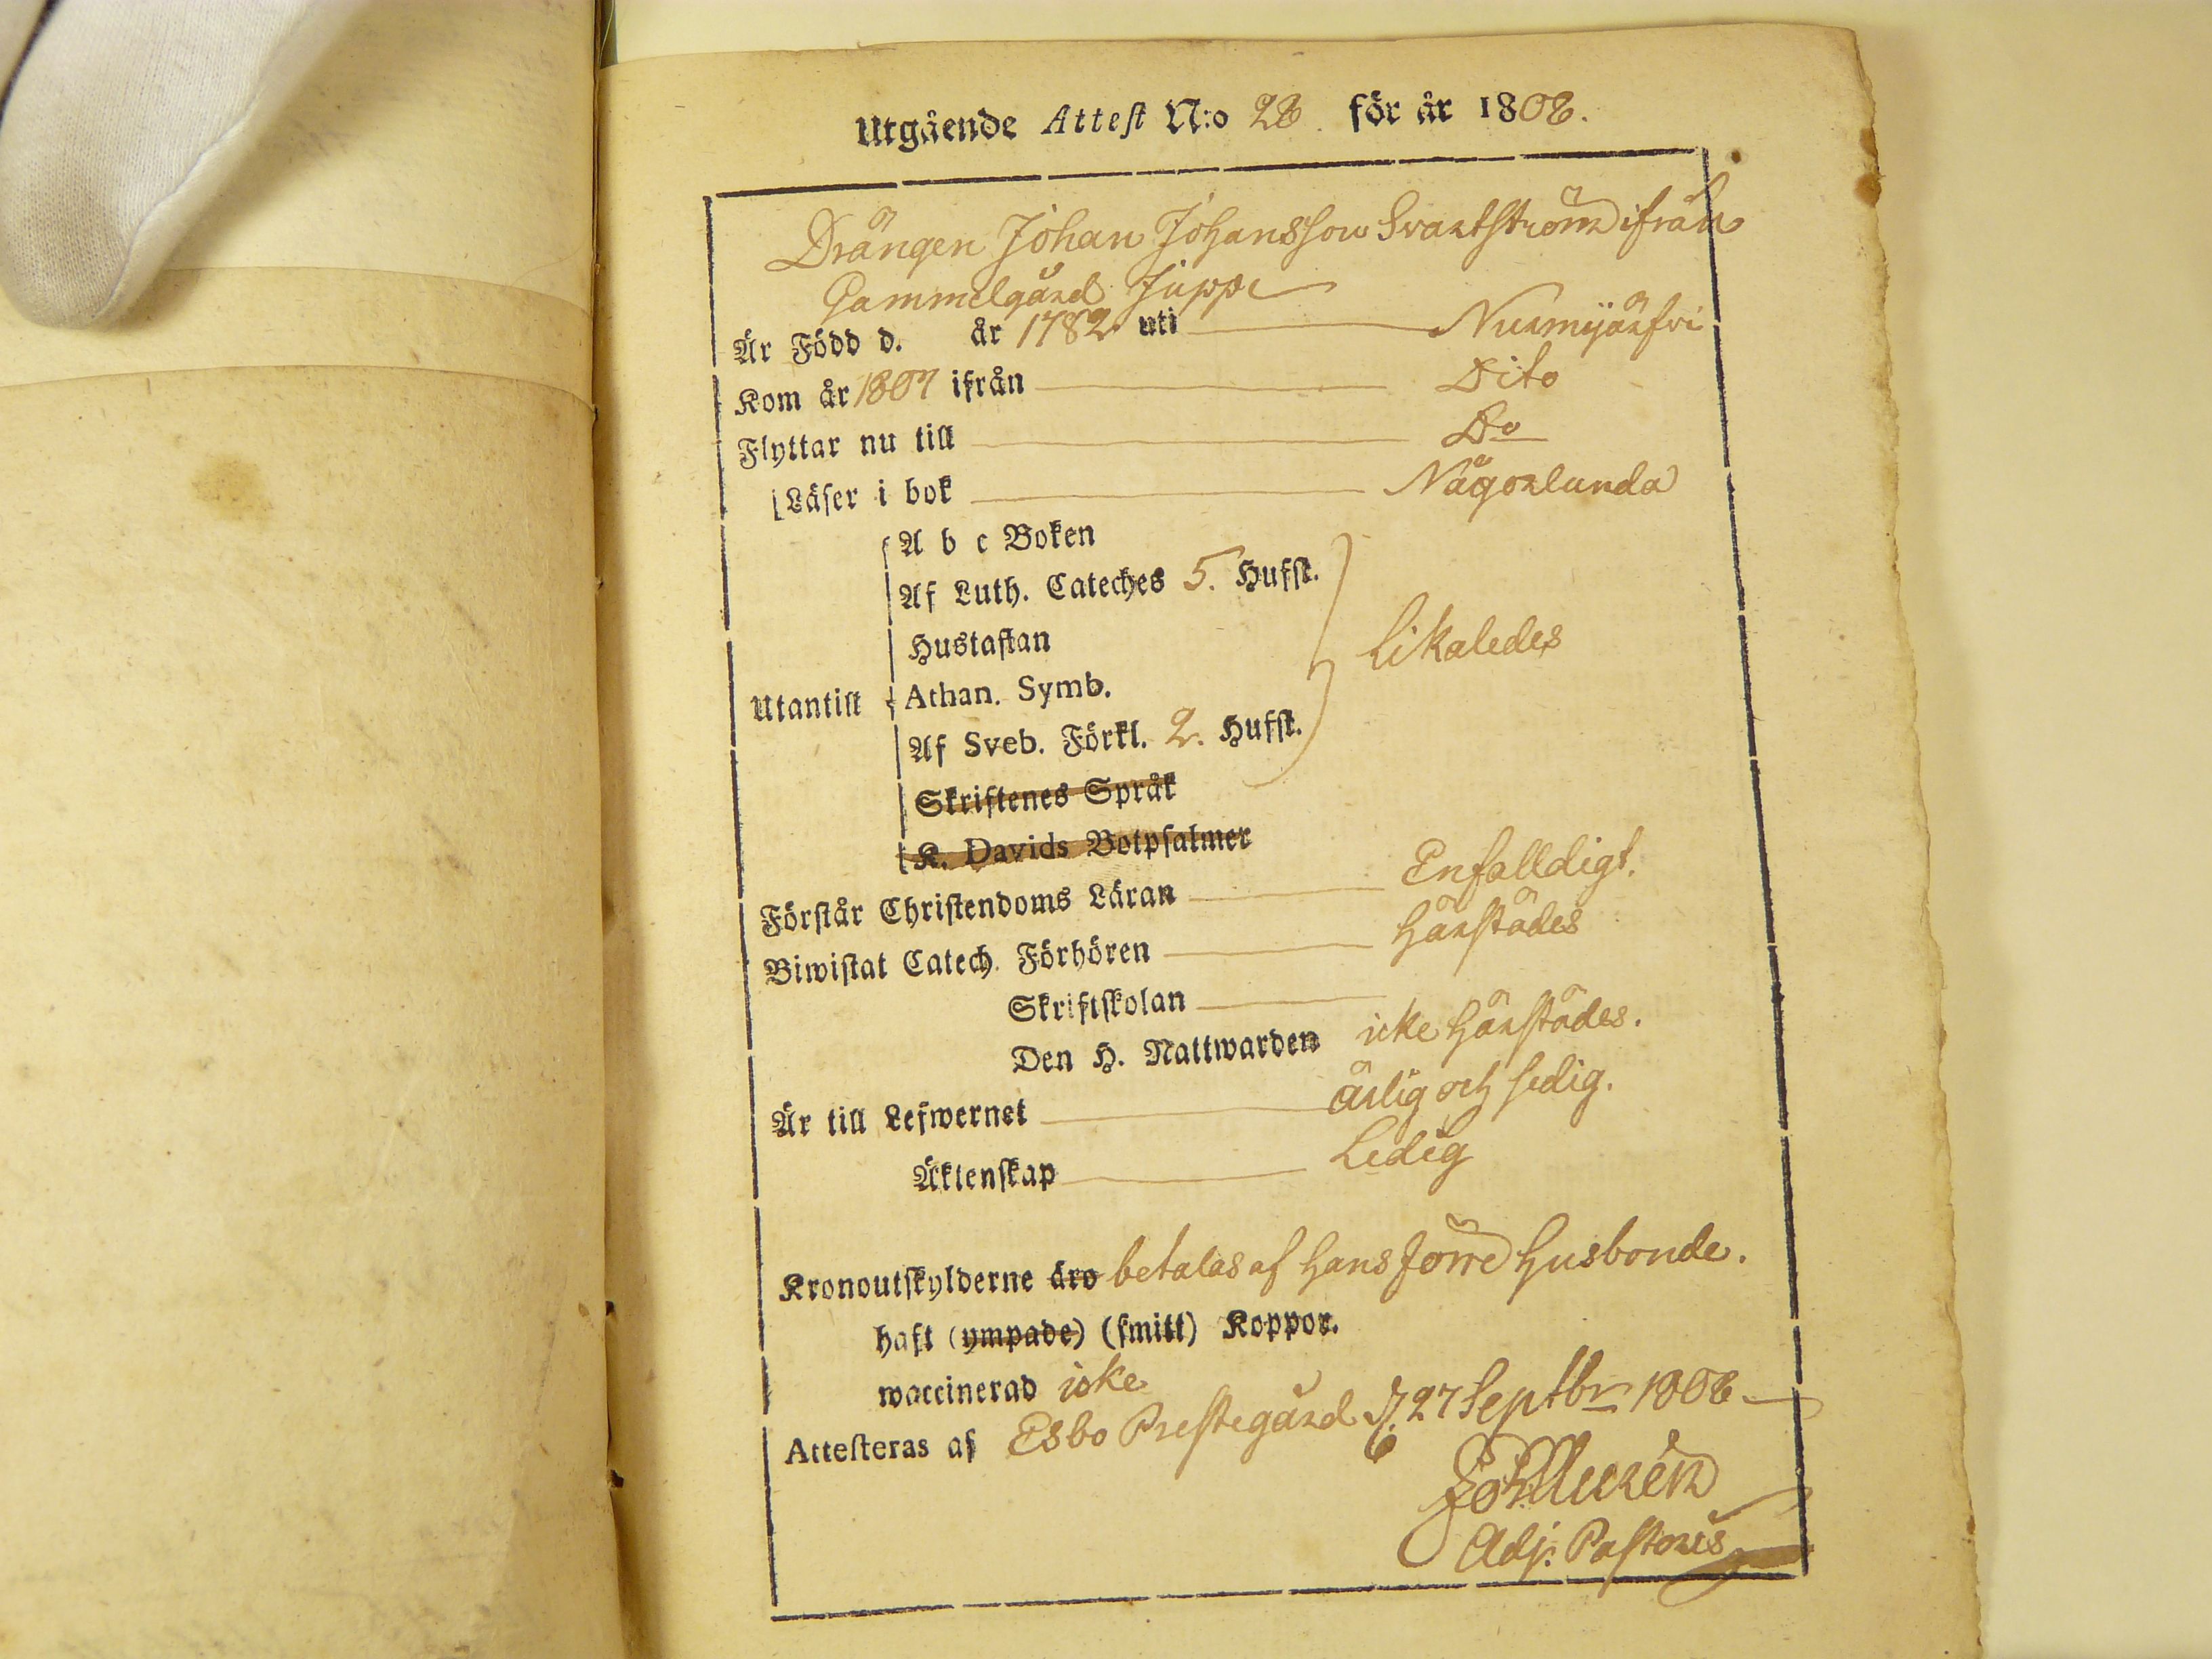 Utgående Attest N:o 28. för år 1808.
Drängen Johan Johansson Svartström ifrån
Gammelgård Juppe
Är Född d. år 1782 uti Nurmijärfvi
Kom år 1807 ifrån Dito
Flyttar nu till Do
Läser i bok Någorlunda
A b c Boken
Af Luth. Cateches 5. Hufst.
Hustaflan
Likaledes
Utantill Athan. Symb.
Af Sveb. Förkl. 2. Hufst.
Skriftenes Språk
K. Davids Botpsalmer
Förstår Christendoms Läran Enfalldigt.
Biwistat Catech. Förhören härstädes
Skriftskolan
Den H. Nattwarden icke härstädes.
Är till Lefwernet ärlig och sedig.
Äktenskap Ledig
Kronoutskylderne äro betalas af hans förre husbonde.
haft (ympade) (smitt) Koppor.
waccinerad icke
Attesteras af Esbo Prestegård d. 27 Septbr 1808
Adj. Pastoris